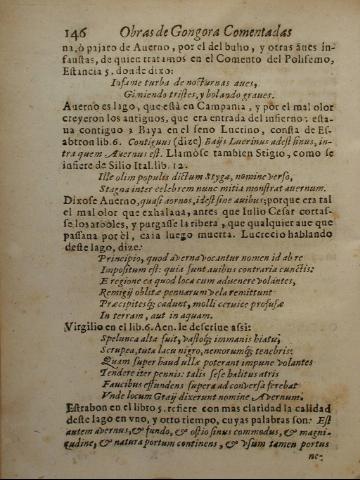 146 Obras de Gongora Comentadas
na, ò pajaro de Auerno, por el del buho, y otras aues in-
faustas, de quien tratamos en el Comento del Polifemo,
Estancia 5. donde dixo:
Infame turba de nocturnas aues,
Gimiendo tristes, y bolando graues.
Auerno es lago, que està en Campania, y por el mal olor
creyeron los antiguos, que era entrada del infierno: esta-
ua contiguo a Baya en el seno Lucrino, consta de Es-
abtron lib. 6. Contiguus (dize) Baijs Lucrinus adest sinus, in-
tra quem Auernus est. Llamose tambien Stigio, como se
infiere de Silio Ital. lib. 12.
Ille olim populis dictum Styga, nomine verso,
Stagna inter celebrem nunc mitia monstrat auernum.
Dixose Auerno, quasi aornos, idest sine auibus; porque era tal
el mal olor que exhalaua, antes que Iulio Cesar cortas-
se los arboles, y purgasse la ribera, que qualquier aue que
passaua por èl, caia luego muerta. Lucrecio hablando
deste lago, dize:
Principio, quod auerna vocantur nomen id ab re
Impositum est: quia sunt auibus contraria cunctis;
E regione ea quod loca cum aduenere volantes,
Remigij oblitæ pennarum vela remittunt
Præcipitesq; cadunt, molli ceruice profusæ
In terram, aut in aquam.
Virgilio en el lib. 6. Aen. le descriue assi:
Spelunca alta fuit, vastoq; immanis hiatu,
Scrupea, tuta lacu nigro, nemorumq; tenebris:
Quam super haud vllæ poterant impune volantes
Tendere iter pennis: talis sese halitus atris
Faucibus effundens supera ad conuexa ferebat
Vnde locum Graij dixerunt nomine Auernum.
Estrabon en el libro 5. refiere con mas claridad la calidad
deste lago en vno, y otro tiempo, cuyas palabras son: Est
autem auernus, & fundo, & ostio sinus commodus, & magni-
tudine, & natura portum continens, & vsum tamen portus
nc-